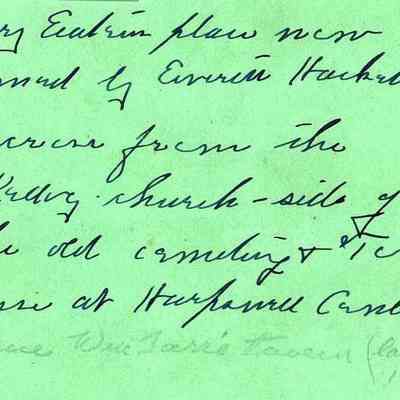 ry Eaton place now
ned by Everett Hacket
across from the
church - side of
e old cemetery & To
se at Harpswell Cent
Wm Tarr's tavern (